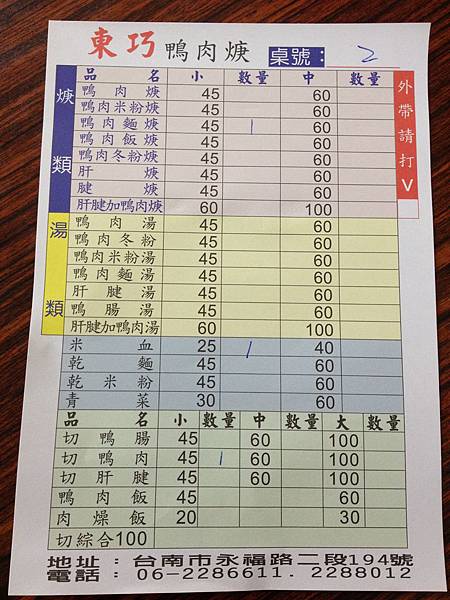 東巧 鴨肉焿 桌號: 2
外帶請打V
焿類
品名 小 數量 中 數量
鴨肉焿 45 60
鴨肉米粉焿 45 60
鴨肉麵焿 45 1 60
鴨肉飯焿 45 60
鴨肉冬粉焿 45 60
肝焿 45 60
腱焿 45 60
肝腱加鴨肉焿 60 100
湯類
鴨肉湯 45 60
鴨肉冬粉 45 60
鴨肉米粉湯 45 60
鴨肉麵湯 45 60
肝腱湯 45 60
鴨腸湯 45 60
肝腱加鴨肉湯 60 100
米血 25 1 40
乾麵 45 60
乾米粉 45 60
青菜 30 60
品名 小 數量 中 數量 大 數量
切鴨腸 45 60 100
切鴨肉 45 1 60 100
切肝腱 45 60 100
鴨肉飯 45 60
肉燥飯 20 30
切綜合100
地址:台南市永福路二段194號
電話:06-2286611.2288012